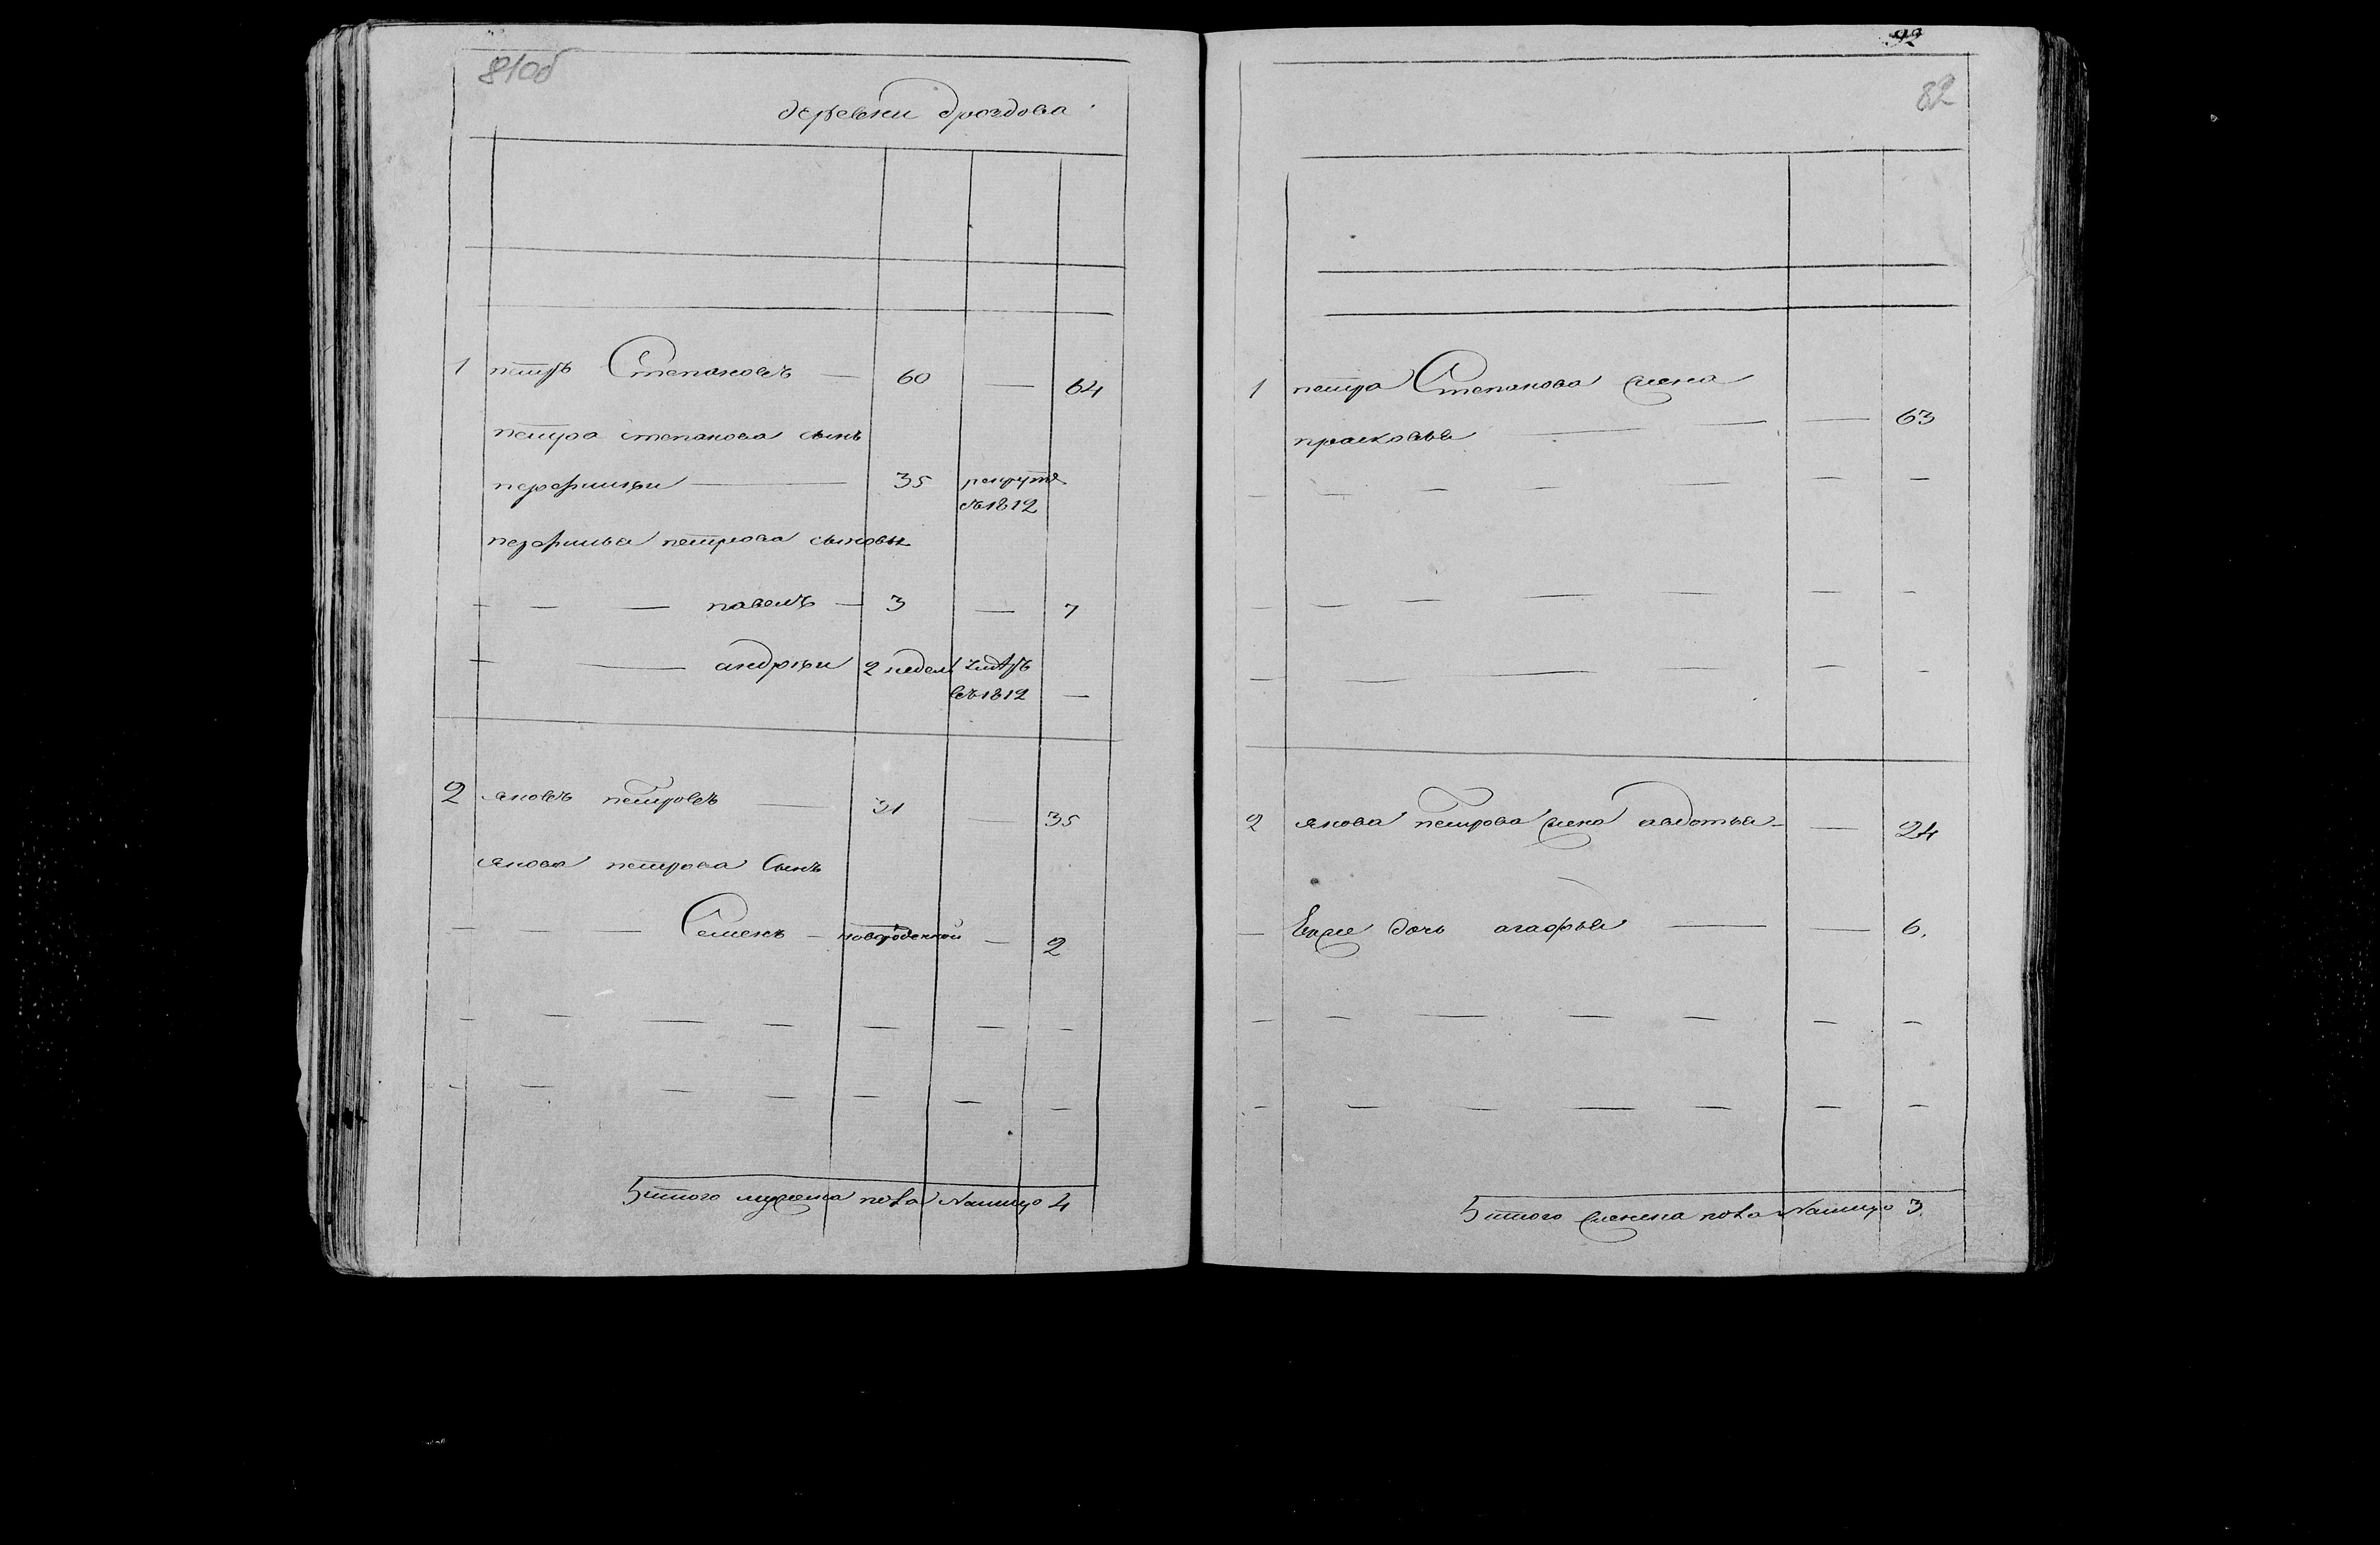 81об
деревни дроздова
1 петръ Степановъ — 60 — 64
петра степанова сынъ
перфилеи — 35 рекрутъ
въ 1812
перфилья петрова сыновья
— — — павелъ — 3 — 7
— — андреи 2 недел
въ 1812 —
2 яковъ петровъ — 31 — 35
якова петрова Сынъ
— — — Семенъ — новорожденной — 2
— — — — — — —
— — — — — — —
итого мужеска пола Налицо 4
92
82
1 петра Степанова жена
прасковья — — — 63
— — — — — — —
— — — — — — —
— — — — — —
2 якова петрова жена авдотья — — 24
— Ево же дочь агафья — — 6.
— — — — — — —
— — — — — — —
итого женска пола Налицо 3.